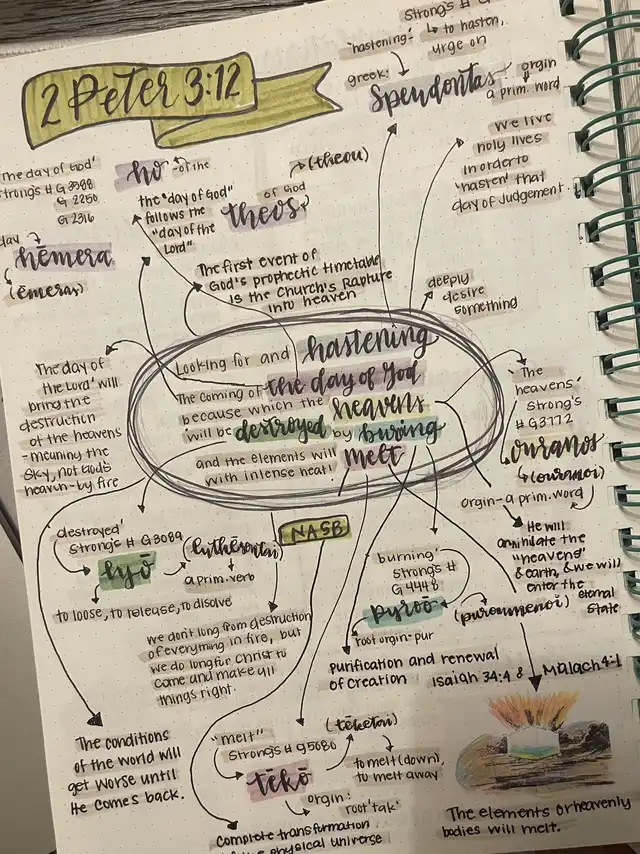 2 Peter 3:12
Strong's # G
'hastening' ↳ to hasten,
urge on
greek:
Speudontas
orgin
a prim. word
We live
holy lives
in order to
'hasten' that
day of judgement.
deeply
desire
something
The day of God'
Strong's # G 3588
G 2250
G 2316
day
hēmera
(ēmeras)
ho
of the
the "day of God"
follows the
"day of the
Lord"
(theou)
of God
theos
The first event of
God's prophetic timetable
is the Church's Rapture
into heaven
The day of
the Lord' will
bring the
destruction
of the heavens
-meaning the
sky, not God's
heaven-by fire
Looking for and hastening
The coming of the day of God
because which the heavens
will be destroyed by buring
and the elements will melt
with intense heat!
NASB
'The
heavens'
Strong's
# G3772
ouranos
(ouranoi)
orgin-a prim.word
He will
annihilate the
"heavens"
& earth, & we will
enter the
eternal
state
destroyed'
Strong's # G3089
lyō
(luthēsontai)
a prim.verb
to loose, to release, to disolve
we don't long from destruction
of everything in fire, but
we do long for Christ to
come and make all
things right.
burning'
Strong's #
G 4448
pyroō
(puroumenoi)
root orgin-pur
purification and renewal
of creation
Isaiah 34:4 8
Malachi 4:1
The conditions
of the world will
get worse until
He comes back.
"melt"
Strong's # G5080
tēkō
(tēketai)
to melt (down),
to melt away
orgin:
root 'tak'
Complete transformation
physical universe
The elements or heavenly
bodies will melt.